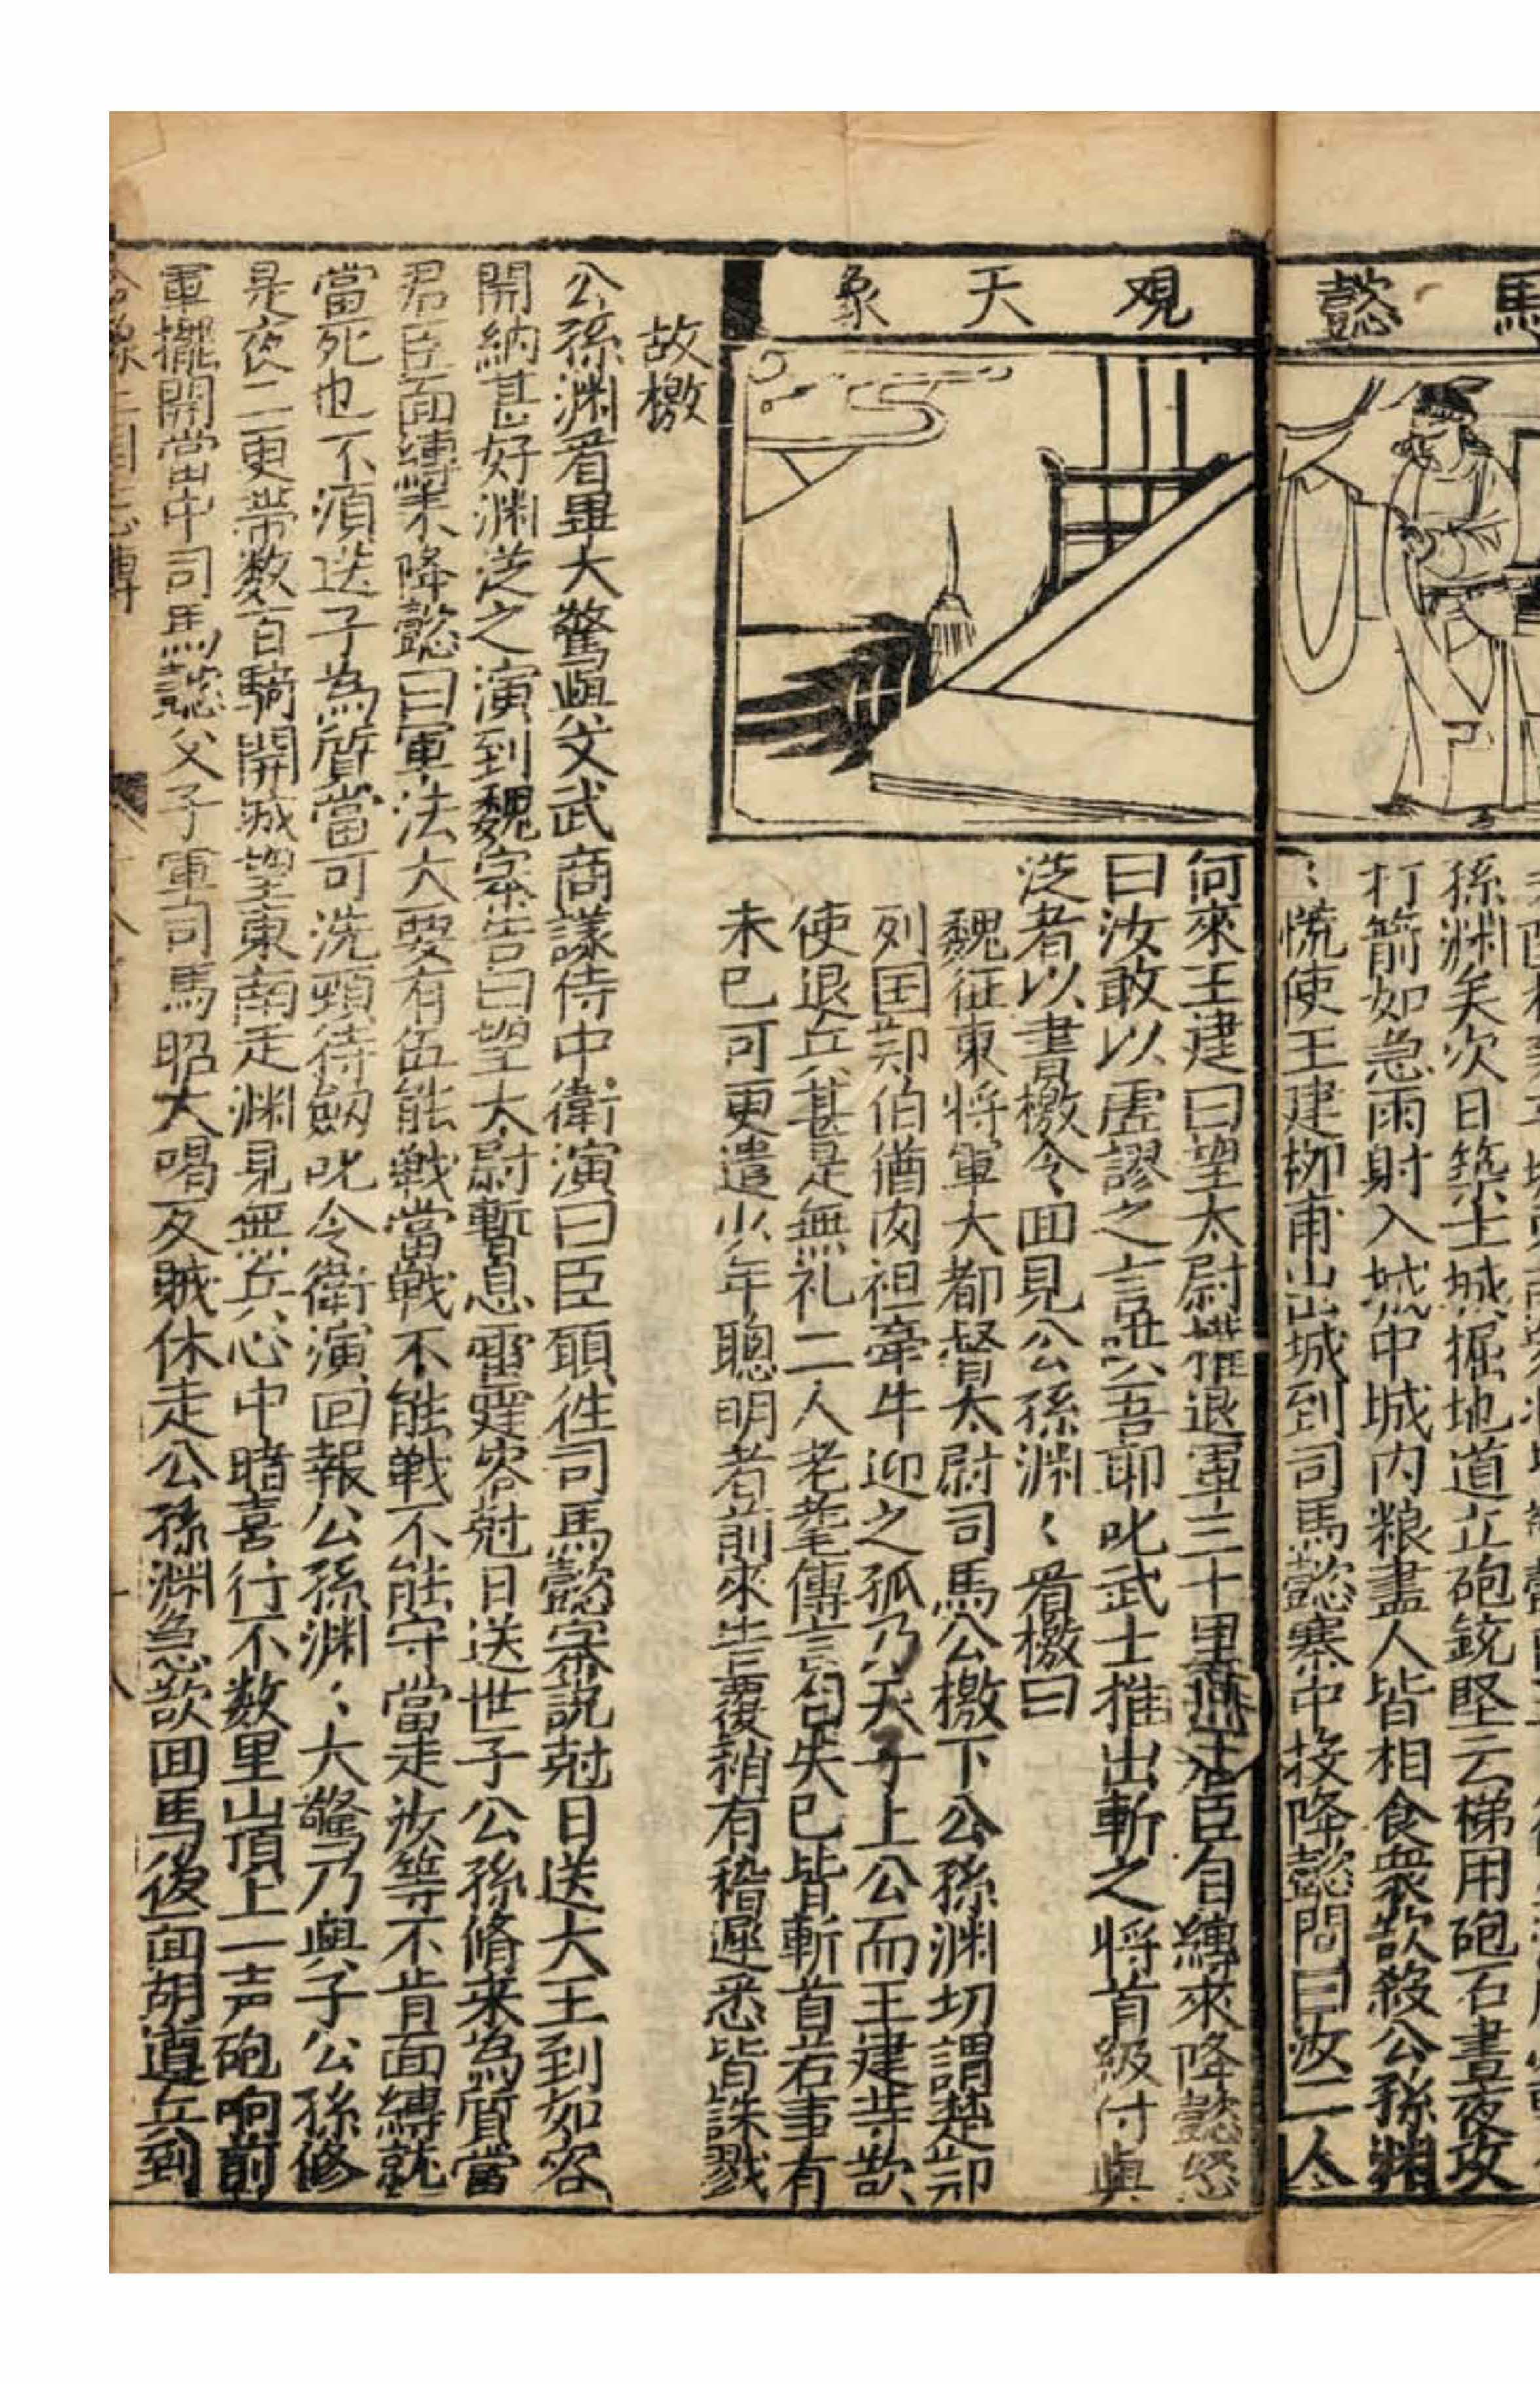 馬懿
孫渊矣次日築土城掘地道立砲鋭堅云梯用砲石晝夜攻
打箭如急雨射入城中城内粮盡人皆相食衆欲殺公孫渊
〻慌使王建柳甫出城到司馬懿寨中投降懿問曰汝二人
观天象
何來王建曰望太尉権退軍三十里燕王君臣自縛來降懿怒
曰汝敢以虚謬之言誑吾耶叱武士推出斬之将首級付與
従者以書檄令回見公孫渊〻看檄曰
魏征東将軍大都督太尉司馬公檄下公孫渊切謂楚郑
列国郑伯猶肉袒牽牛迎之孤乃天子上公而王建等欲
使退兵甚是無礼二人老耄傳言必失已皆斬首若事有
未已可更遣少年聰明者前來告覆稍有稽遲悉皆誅戮
故檄
公孫渊看畢大驚與公文武商議侍中衛演曰臣願徃司馬懿寨説尅日送大王到如容
開納甚好渊从之演到魏寨告曰望太尉暫息雷霆容尅日送世子公孫脩来為質當
君臣面縛来降懿曰軍法大要有伍能戦當戦不能戦不能守當走汝等不肯面縛就
當死也不須送子為質當可洗頸待劒叱令衛演回報公孫渊〻大驚乃與子公孫修
是夜二更帯数百騎開城望東南走渊見無兵心中暗喜行不数里山頂上一声砲响前
軍擺開當中司馬懿父子軍司馬昭大喝反賊休走公孫渊急欲回馬後面胡遵兵到